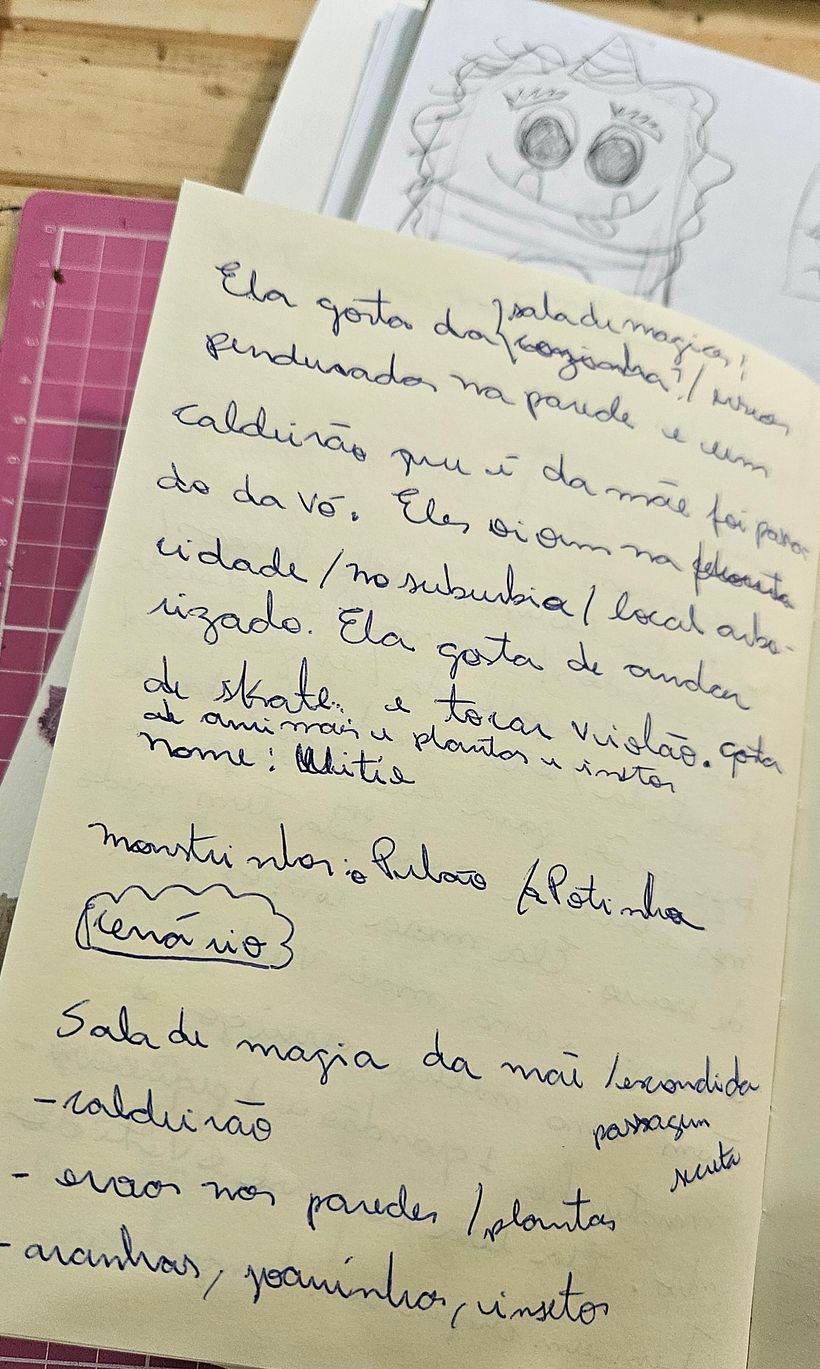 Ela gosta da sala de magica!
cozinha? / ervas
penduradas na parede e um
caldeirão que é da mãe foi passa-
do da vó. Eles viviam na floresta
cidade / no suburbia / local arbo-
rizado. Ela gosta de andar
de skate e tocar violão. gosta
de animais e plantas e insetos
nome:
monstrinhos: Pulão / Potinha
cenário
Sala de magia da mãe / escondida
passagem
secreta
- caldeirão
- ervas nas paredes / plantas
- aranhas, joaninhas, insetos